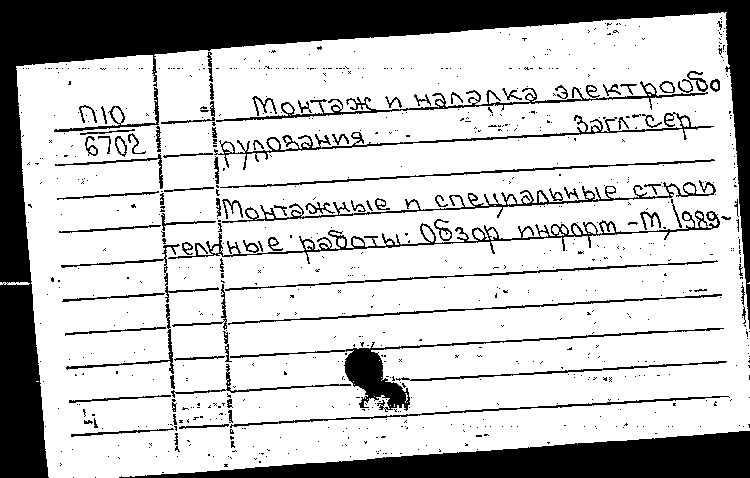 П10 Монтаж и наладка электрообо
6702 рудования Загл. сер
Монтажные и специальные строи
тельные работы: Обзор. информ -М, 1989-